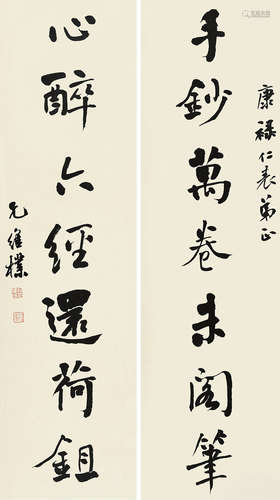 康祿仁表弟正
手鈔萬卷未閣筆
心醉六經還荷鉏
兄維樸